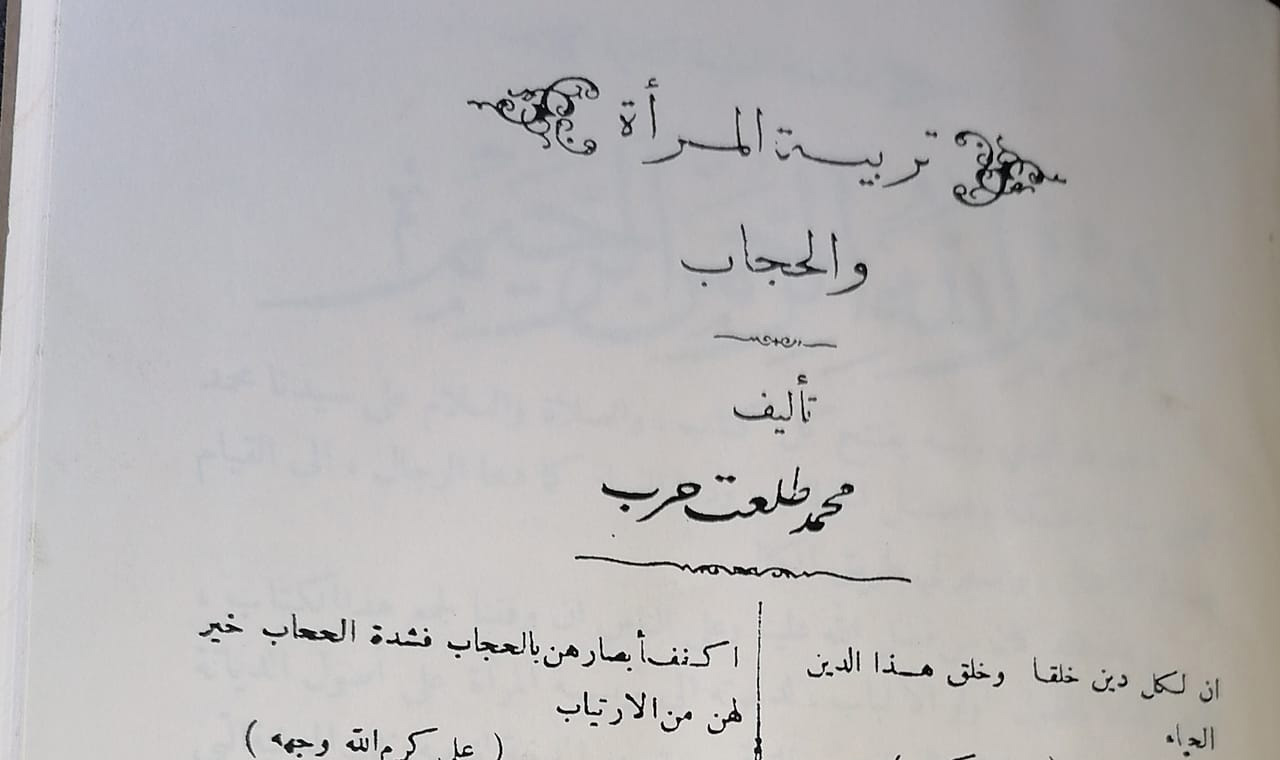 تربية المرأة
والحجاب
تأليف
محمد طلعت حرب
ان لكل دين خلقا وخلق هذا الدين
الحياء
اكنف أبصارهن بالحجاب فشدة الحجاب خير
لهن من الارتياب
( على كرم الله وجهه )